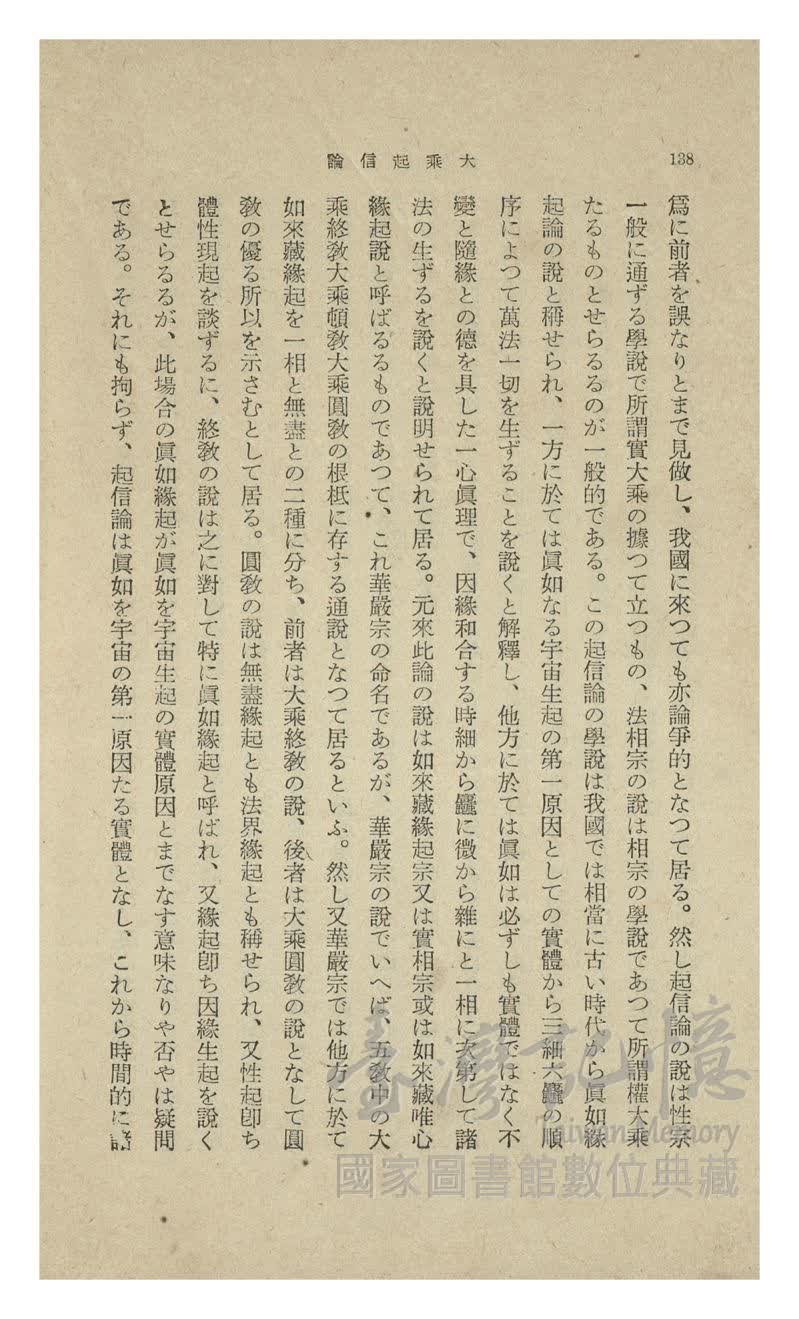 138
大乘起信論
爲に前者を誤なりとまで見做し、我國に來つても亦論爭的となつて居る。然し起信論の說は性宗
一般に通ずる學說で所謂實大乘の據つて立つもの、法相宗の說は相宗の學說であつて所謂權大乘
たるものとせらるるのが一般的である。この起信論の學說は我國では相當に古い時代から眞如緣
起論の說と稱せられ、一方に於ては眞如なる宇宙生起の第一原因としての實體から三細六麤の順
序によつて萬法一切を生ずることを說くと解釋し、他方に於ては眞如は必ずしも實體ではなく不
變と隨緣との德を具した一心眞理で、因緣和合する時細から麤に微から雜にと一相に次第して諸
法の生ずるを說くと說明せられて居る。元來此論の說は如來藏緣起宗又は實相宗或は如來藏唯心
緣起說と呼ばるるものであつて、これ華嚴宗の命名であるが、華嚴宗の說でいへば、五敎中の大
乘終敎大乘頓敎大乘圓敎の根柢に存する通說となつて居るといふ。然し又華嚴宗では他方に於て
如來藏緣起を一相と無盡との二種に分ち、前者は大乘終敎の說、後者は大乘圓敎の說となして圓
敎の優る所以を示さむとして居る。圓敎の說は無盡緣起とも法界緣起とも稱せられ、又性起卽ち
體性現起を談ずるに、終敎の說は之に對して特に眞如緣起と呼ばれ、又緣起卽ち因緣生起を說く
とせらるるが、此場合の眞如緣起が眞如を宇宙生起の實體原因とまでなす意味なりや否やは疑問
である。それにも拘らず、起信論は眞如を宇宙の第一原因たる實體となし、これから時間的に諸
臺灣記憶
Taiwan Memory
國家圖書館數位典藏